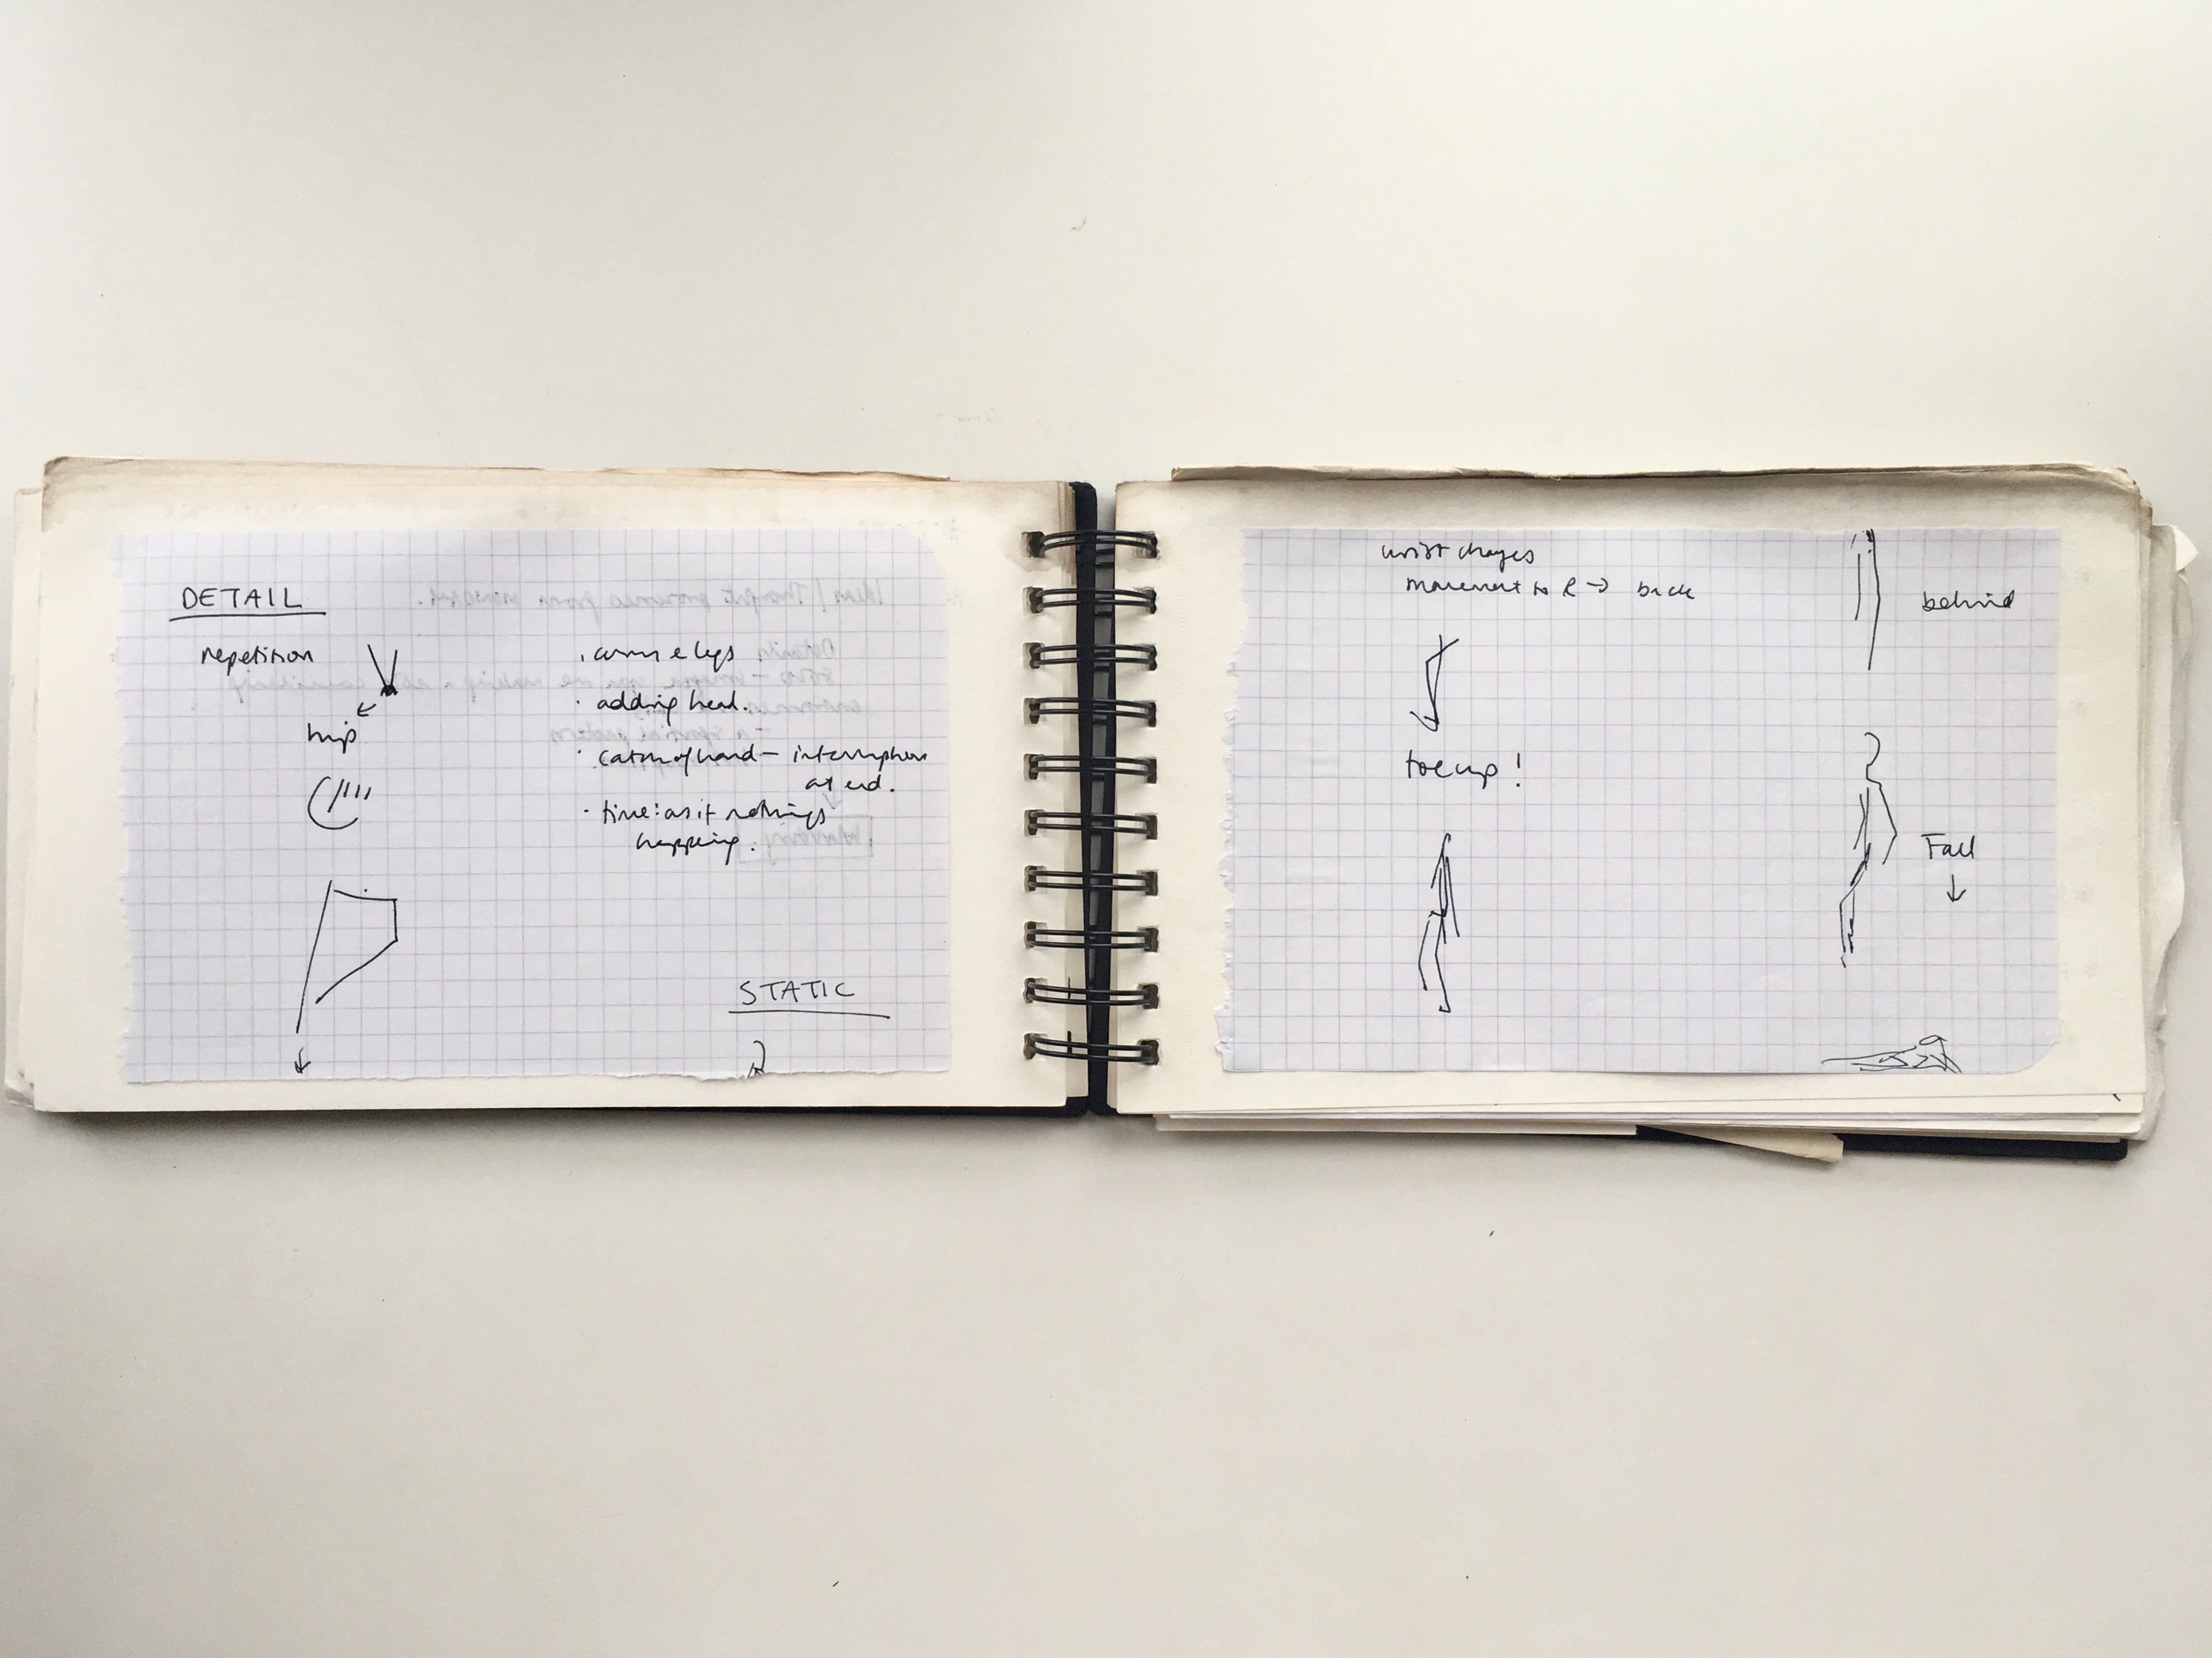 DETAIL
repetition
hip
· adding head.
· catch of hand – interruption
at end.
· time: as if nothings
happening.
STATIC
wrist changes
movement to R → back
toe up!
behind
Fall